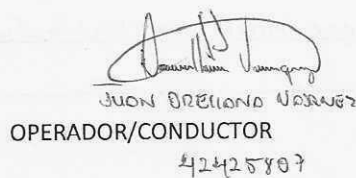 JUAN ORELLANA VASQUEZ
OPERADOR/CONDUCTOR
42425897